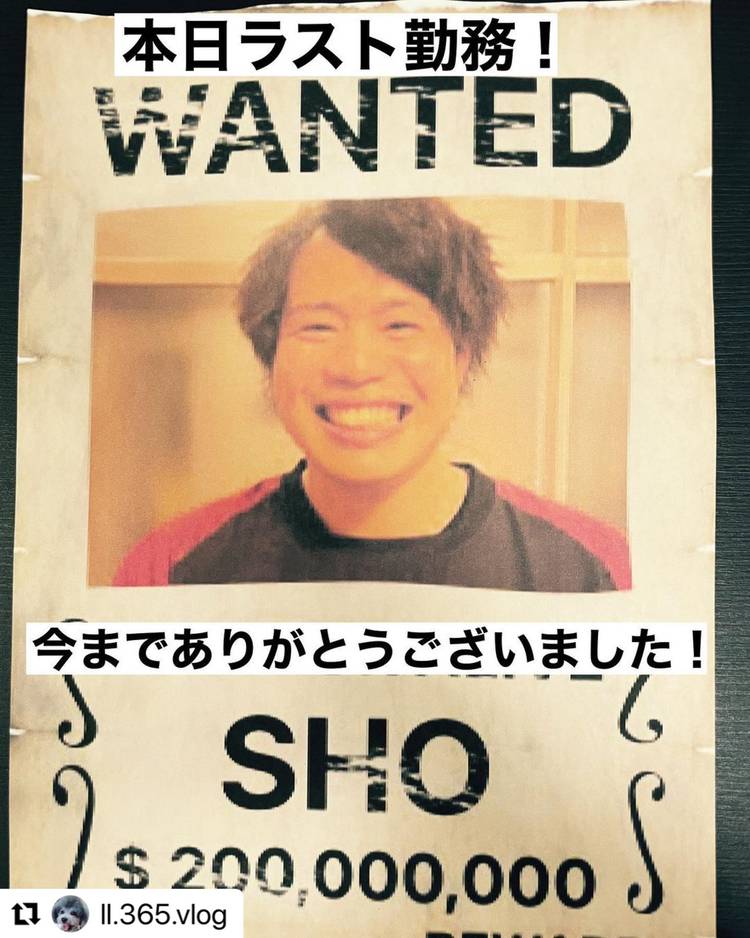 本日ラスト勤務！
WANTED
今までありがとうございました！
SHO
$ 200,000,000
ll.365.vlog